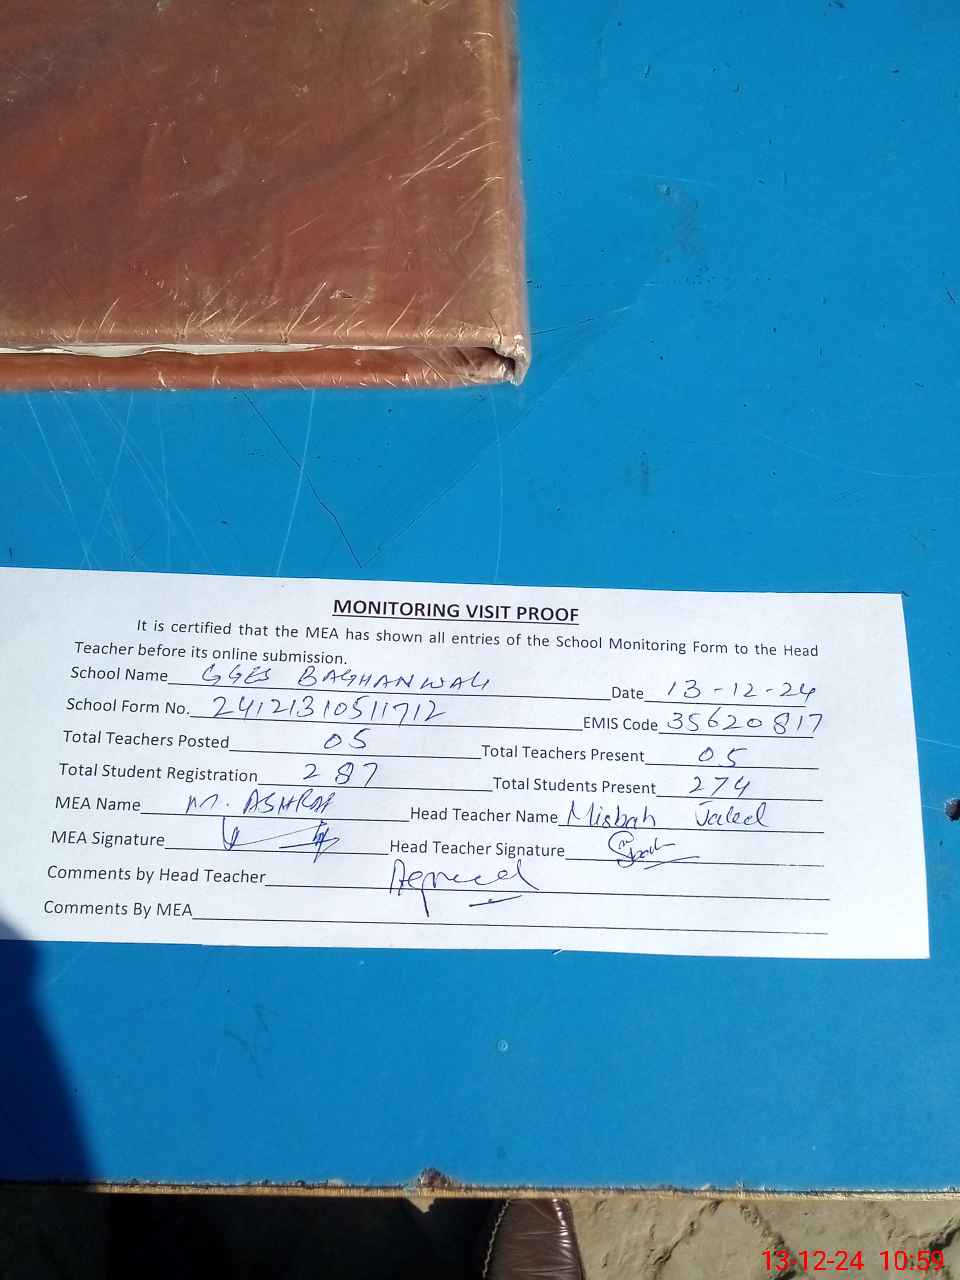 MONITORING VISIT PROOF
It is certified that the MEA has shown all entries of the School Monitoring Form to the Head
Teacher before its online submission.
School Name GGES BAGHANWALI Date 13-12-24
School Form No. 24121310511712 EMIS Code 35620817
Total Teachers Posted 05 Total Teachers Present 05
Total Student Registration 287 Total Students Present 274
MEA Name M. ASHRAF Head Teacher Name Misbah
MEA Signature Head Teacher Signature
Comments by Head Teacher Agreed
Comments By MEA
13-12-24 10:59